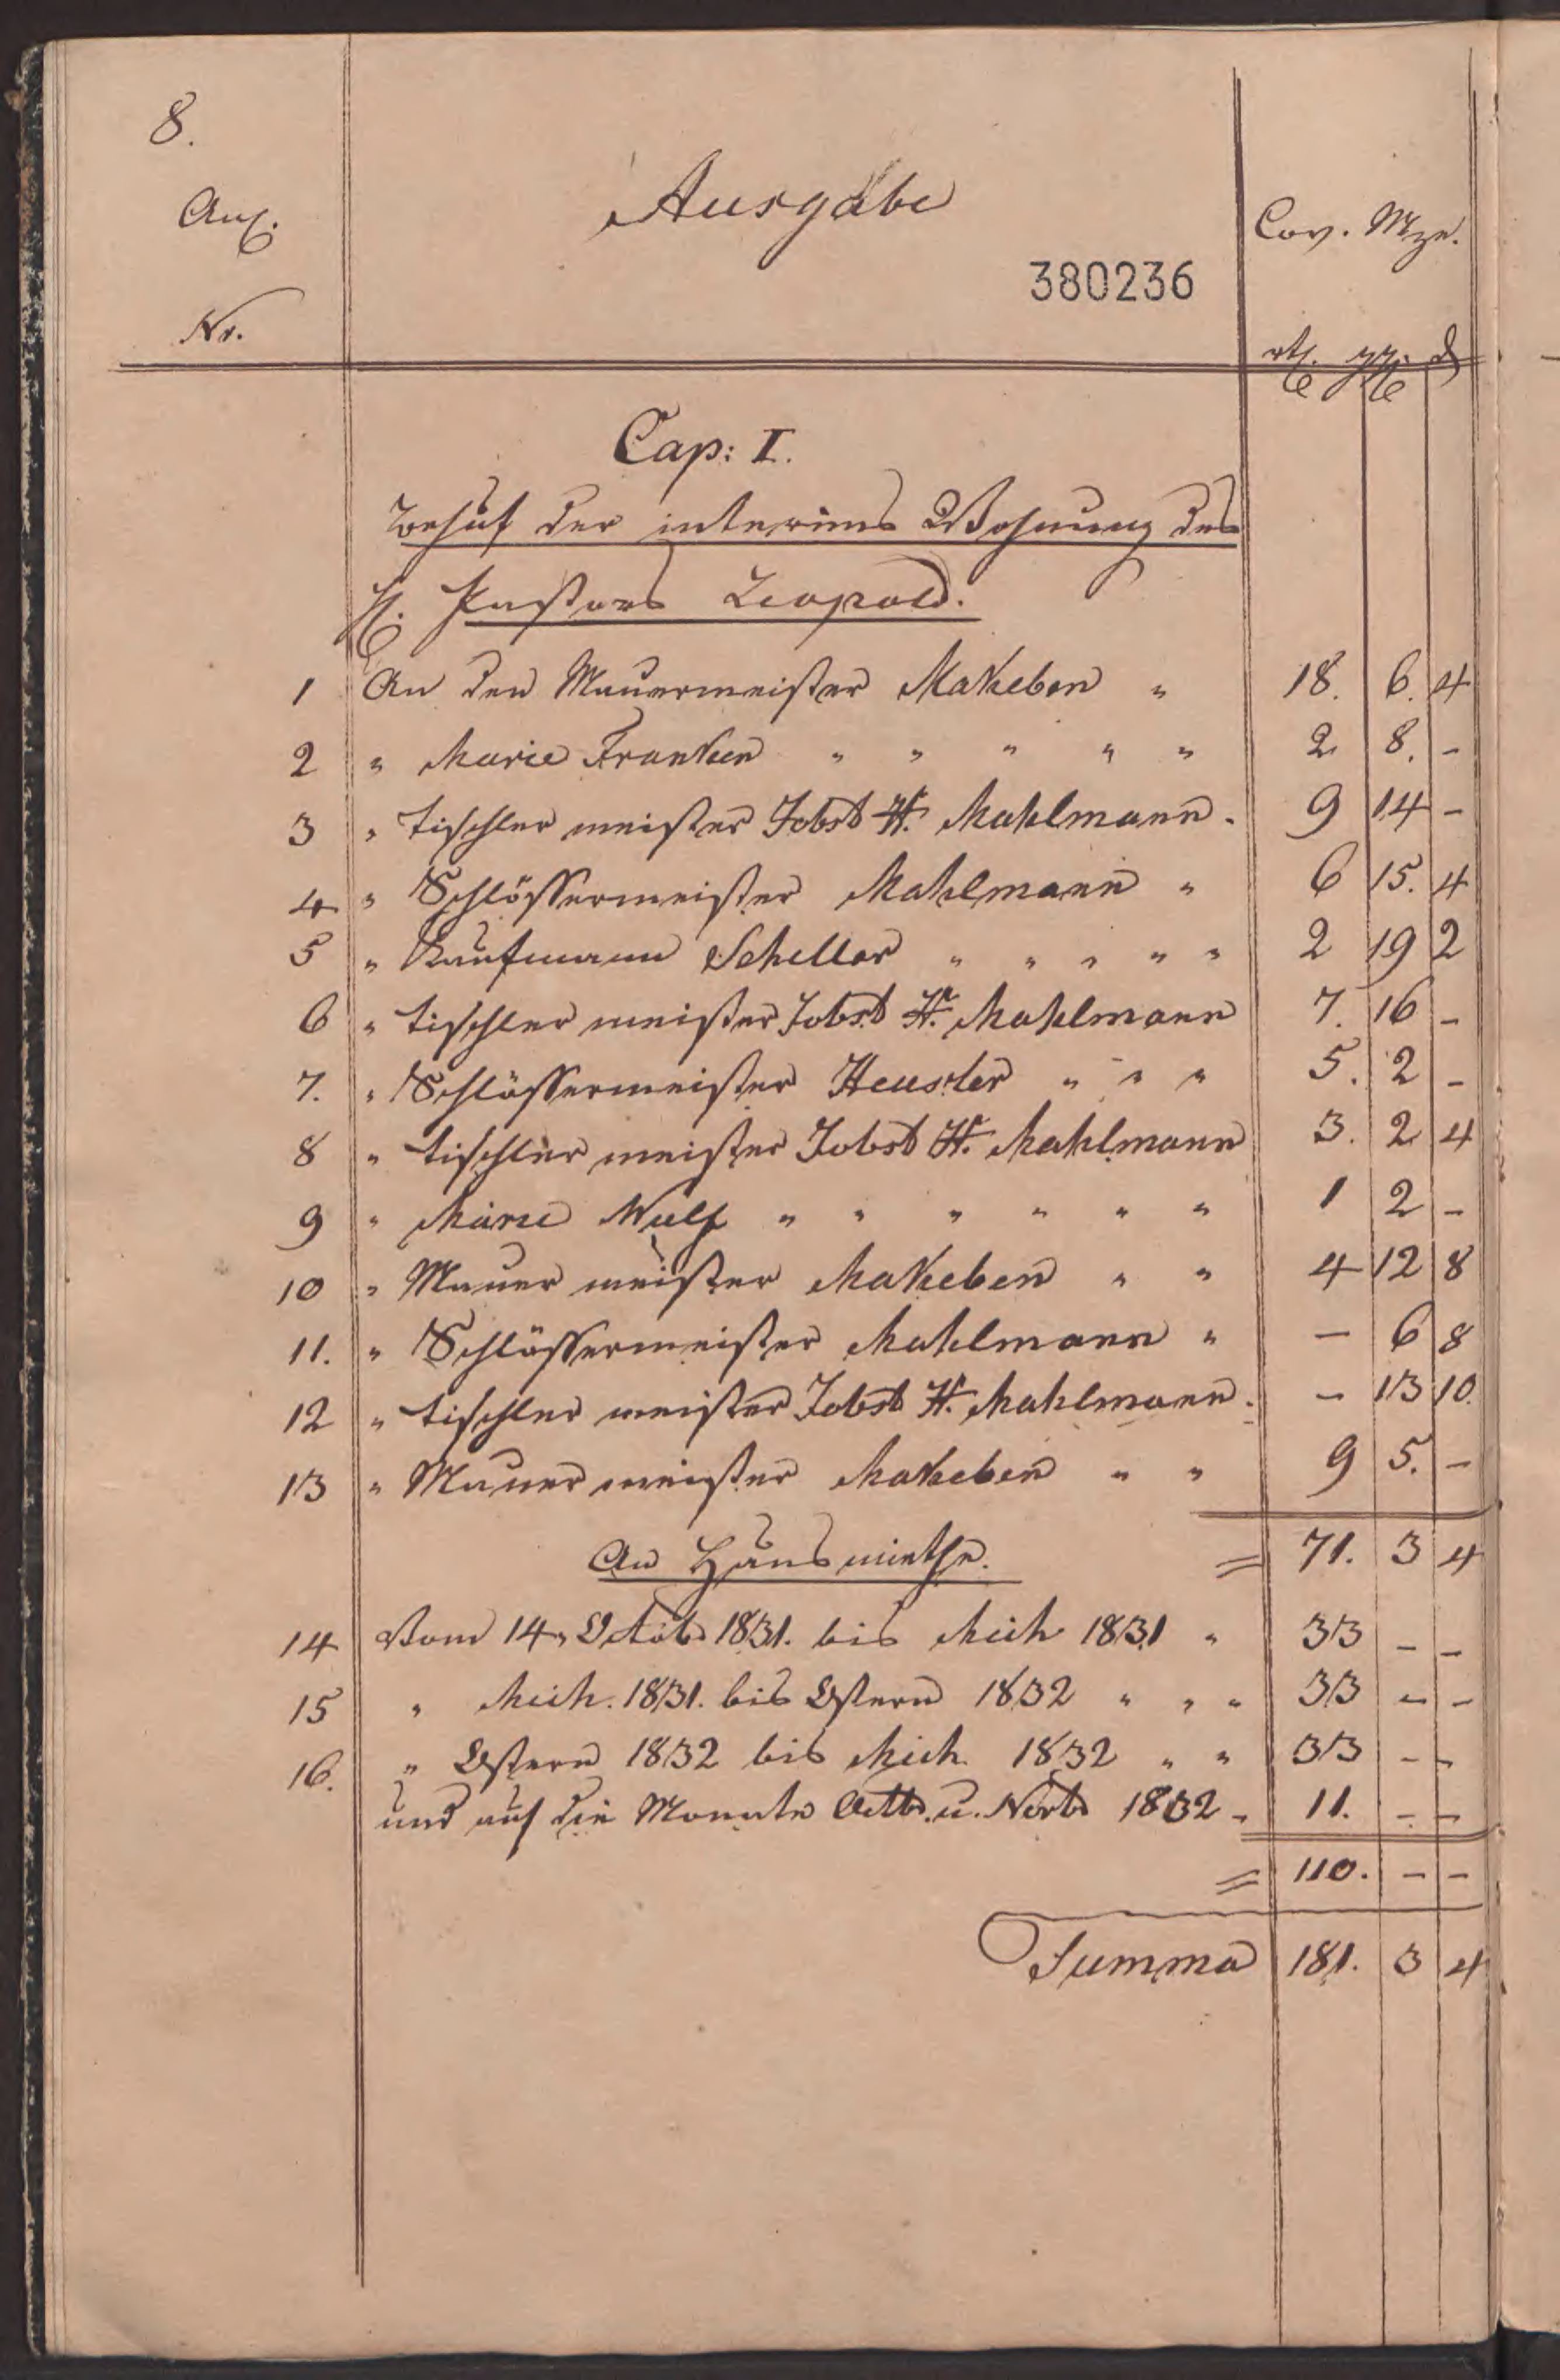 8.
Anl.
Ausgabe
Cov. Mze.
380236
Nr.
rth ggr d
Cap: I.
Behuf der interims Wohnung des
H. Pastors Leopold.
1 An den Mauermeister Makeben " 18. 6. 4
2 " Marie Franken " " " " " 2 8. -
3 " Tischlermeister Jobst H. Mahlmann. 9 14 -
4 " Schlössermeister Mahlmann " 6 15. 4
5 " Kaufmann Scheller " " " " " 2 19 2
6 " Tischlermeister Jobst H. Mahlmann 7. 16 -
7. " Schlössermeister Heusler " " " 5. 2 -
8 " Tischlermeister Jobst H. Mahlmann 3. 2 4
9 " Marie Wulf " " " " " " 1 2 -
10 " Mauermeister Makeben " " 4 12 8
11. " Schlössermeister Mahlmann " - 6 8
12 " Tischlermeister Jobst H. Mahlmann. - 13 10.
13 " Mauermeister Makeben " " 9 5. -
An Hausmiethe. = 71. 3 4
14 Vom 14. 1831. bis Mich 1831 " 33 - -
15 " Mich. 1831. bis Ostern 1832 " " " 33 - -
16. " Ostern 1832 bis Mich. 1832 " " 33 - -
und auf die Monate Octb. u. Novb 1832 - 11. - -
= 110. - -
Summa 181. 3 4